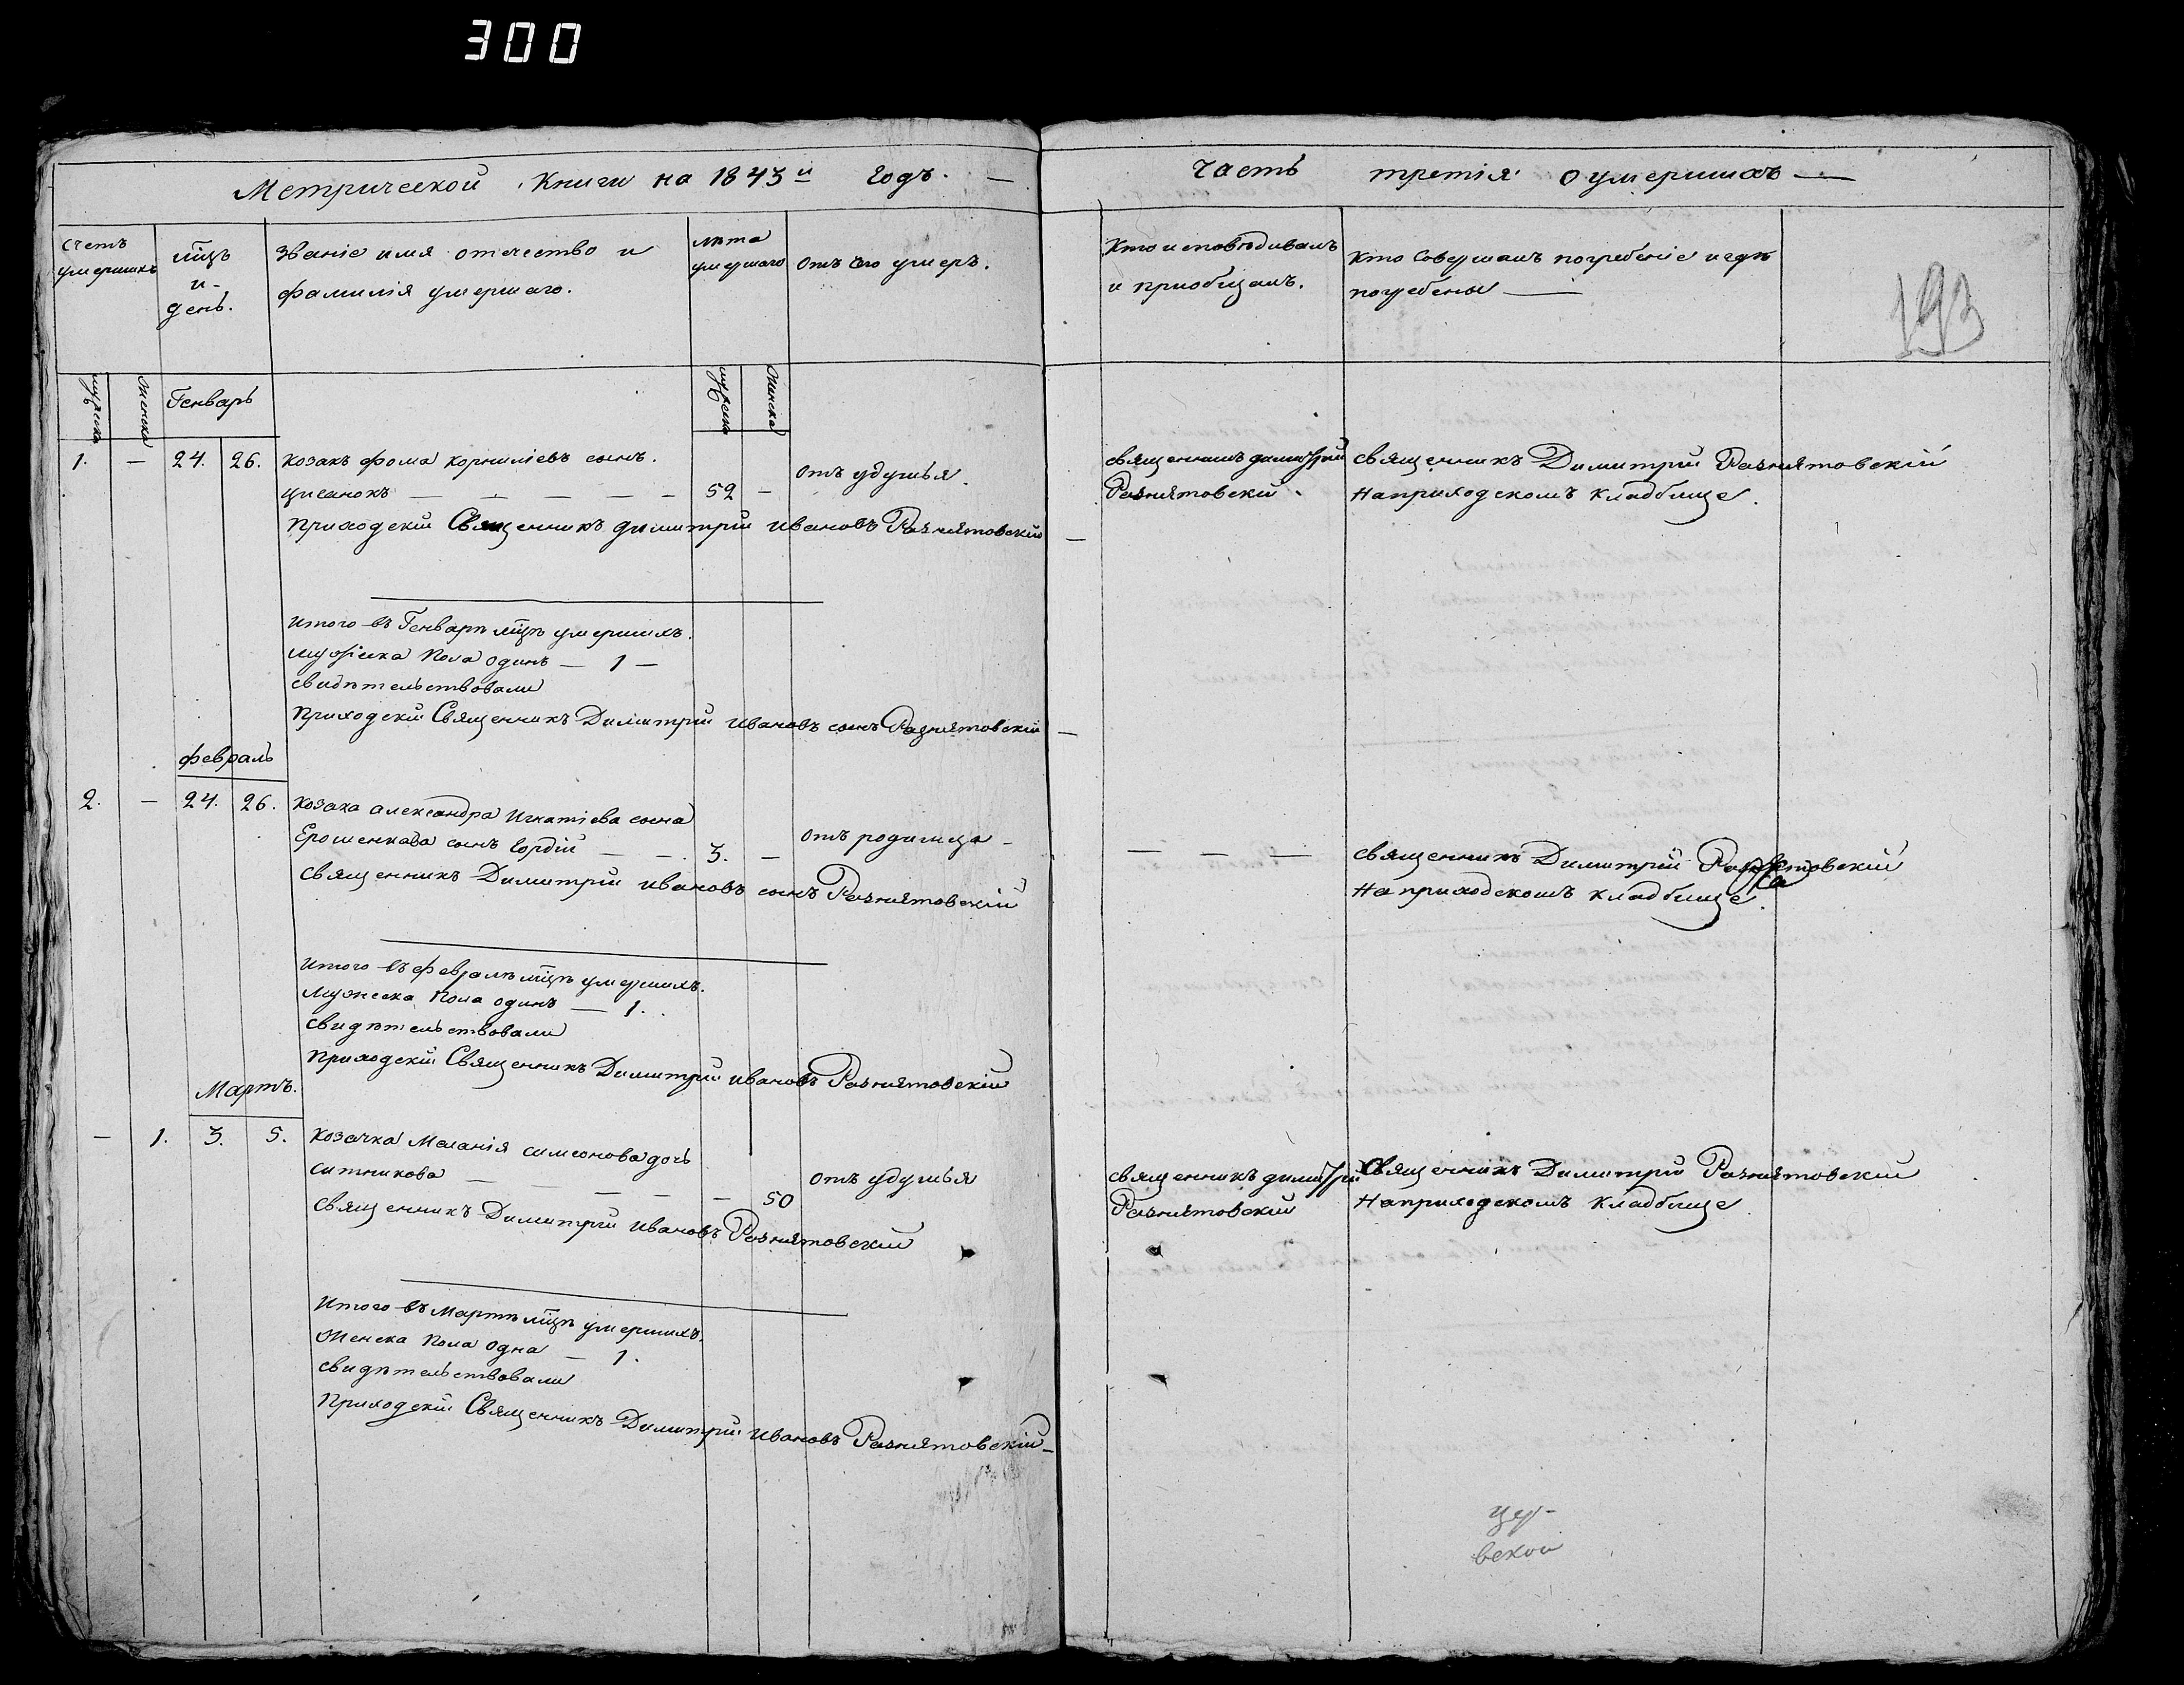 300
Метрической Книги на 1843й годъ. —
Часть третія о умершихъ —
счетъ умершихъ
мцъ и день.
званіе имя отечество и
фамилія умершаго.
лѣта умершаго
отъ чего умеръ.
Кто исповѣдивалъ
и приобщалъ.
Кто Совершалъ погребеніе и гдѣ
погребены —
193
мужеска
женска
Генварь
мужеска
женска
1. — 24. 26. козакъ фома корниліевъ сынъ.
— — — — — 52 —
отъ удушья.
священникъ димитрій
Рознятовскій.
священникъ Димитрій Рознятовскій
на приходскомъ кладбище.
приходскій Священникъ димитрій ивановъ Рознятовскій —
итого въ Генварѣ мцѣ умершихъ.
мужеска пола одинъ — 1 —
свидѣтельствовали
приходскій Священникъ Димитрій ивановъ сынъ Рознятовскій —
февраль
2. — 24. 26. козака александра Игнатіева сына
Ерошенкова сынъ — — 3. —
отъ родимца —
— — —
священникъ Димитрій Рознятовскій
на приходскомъ кладбище.
священникъ Димитрій ивановъ сынъ Рознятовскій
итого въ февралѣ мцѣ умершихъ.
мужеска пола одинъ — 1.
свидѣтельствовали
приходскій Священникъ Димитрій ивановъ Рознятовскій
Мартъ.
— 1. 3. 5. козачка Меланія симеонова дочь
ситникова — — — — — 50
отъ удушья
священникъ димитрій
Рознятовскій
Священникъ Димитрій Рознятовскій
на приходскомъ кладбище
священникъ Димитрій ивановъ Рознятовскій
итого въ Мартѣ мцѣ умершихъ.
женска пола одна — 1.
свидѣтельствовали
приходскій Священникъ Димитрій ивановъ Рознятовскій —